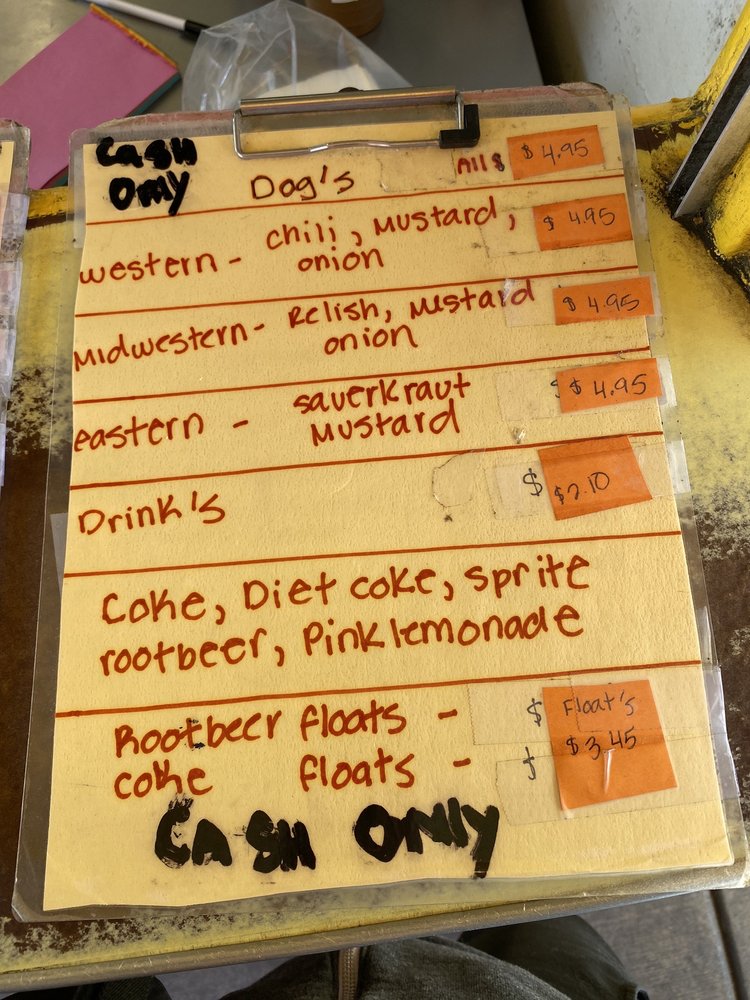 Cash Only
Dog's All $ $4.95
western - chili, Mustard, onion $4.95
Midwestern - Relish, Mustard onion $4.95
eastern - sauerkraut Mustard $ $4.95
Drink's $ $2.10
Coke, Diet coke, sprite
rootbeer, Pink lemonade
Rootbeer floats - $ Float's
coke floats - $ $3.45
Cash Only